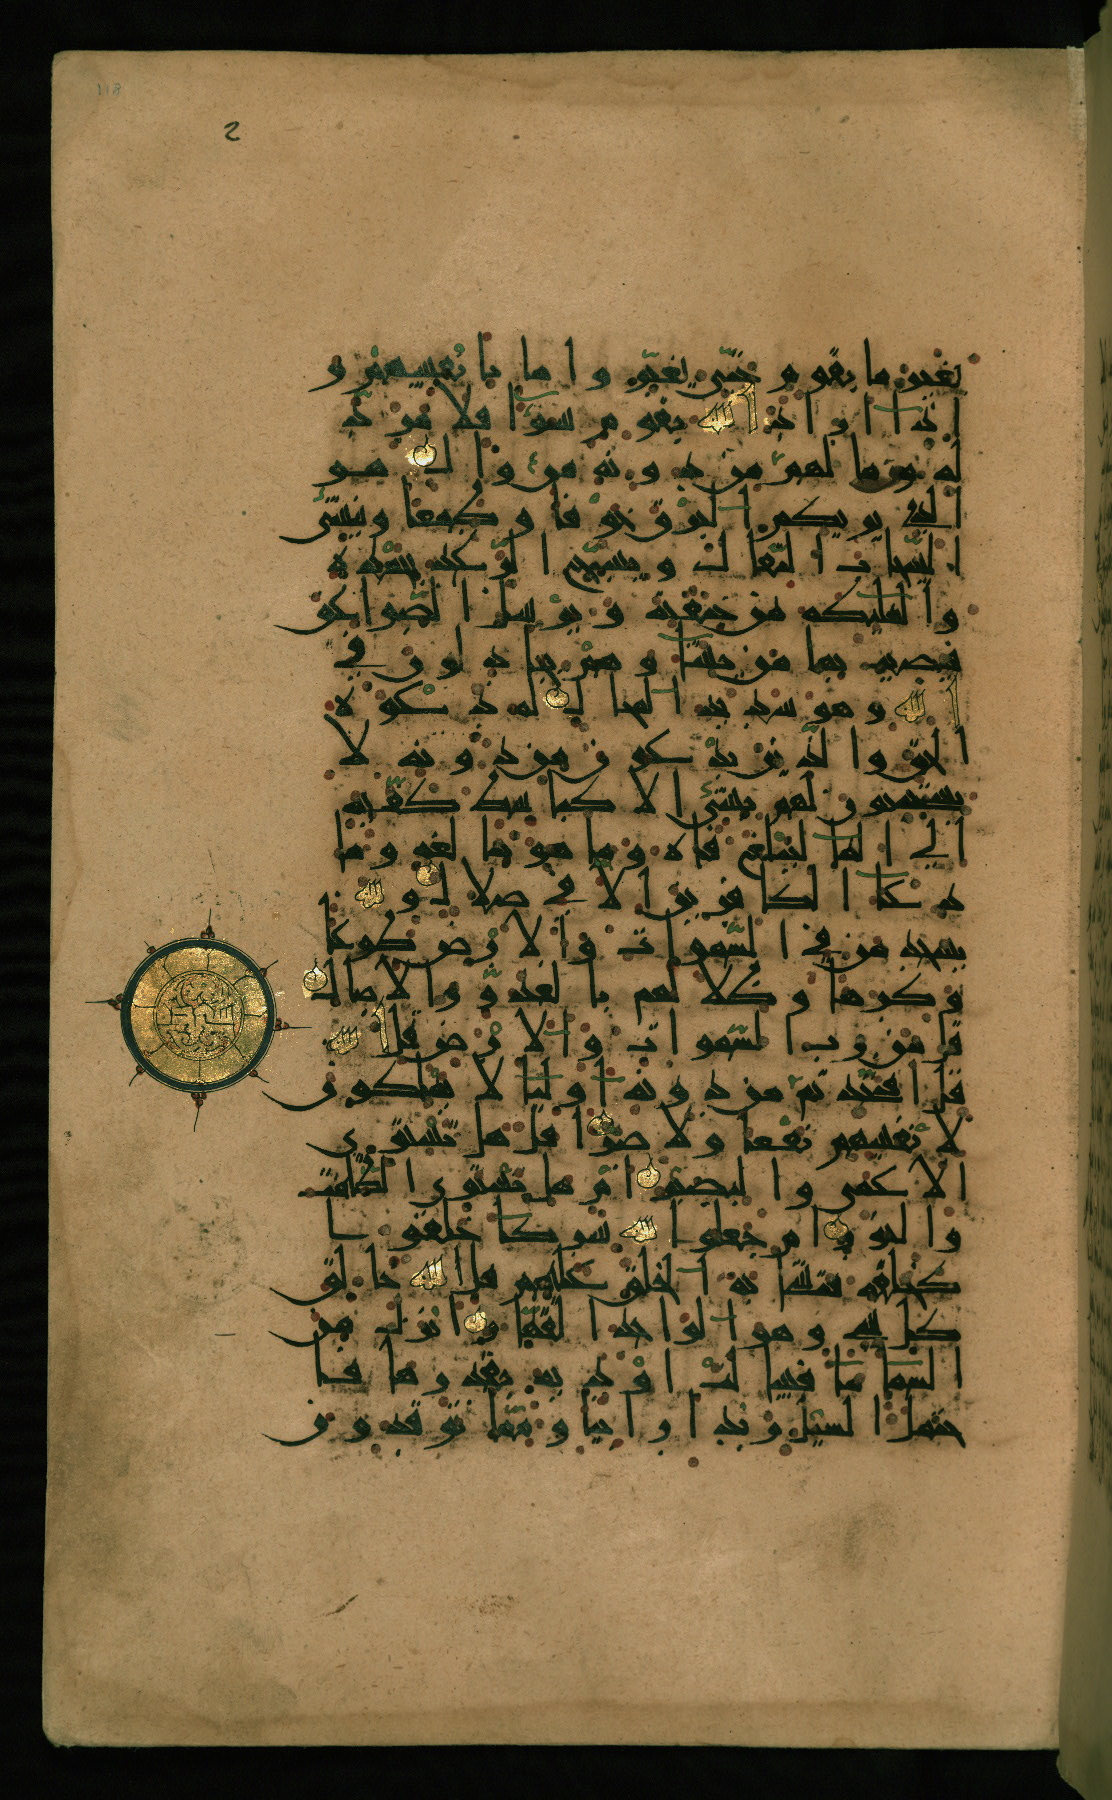 118
2
يغير ما بقوم حتى يغيروا ما بانفسهم و
اذا اراد الله بقوم سوءا فلا مرد
له وما لهم من دونه من وال هو
الذي يريكم البرق خوفا وطمعا وينشئ
السحاب الثقال ويسبح الرعد بحمده
والملئكة من خيفته ويرسل الصواعق
فيصيب بها من يشا وهم يجادلون في
الله وهو شديد المحال له دعوة
الحق والذين يدعون من دونه لا
يستجيبون لهم بشي الا كباسط كفيه
الى الما ليبلغ فاه وما هو ببالغه وما
دعا الكافرين الا في ضلال ولله
يسجد من في السموات والارض طوعا
وكرها وظلالهم بالغدو والاصال
قل من رب السموات والارض قل الله
قل افاتخذتم من دونه اوليا لا يملكون
لانفسهم نفعا ولا ضرا قل هل يستوي
الاعمى والبصير ام هل تستوي الظلمت
والنور ام جعلوا لله شركا خلقوا
كخلقه فتشابه الخلق عليهم قل الله خالق
كل شي وهو الواحد القهار انزل من
السما ما فسالت اودية بقدرها فا
حتمل السيل زبدا رابيا ومما توقدون